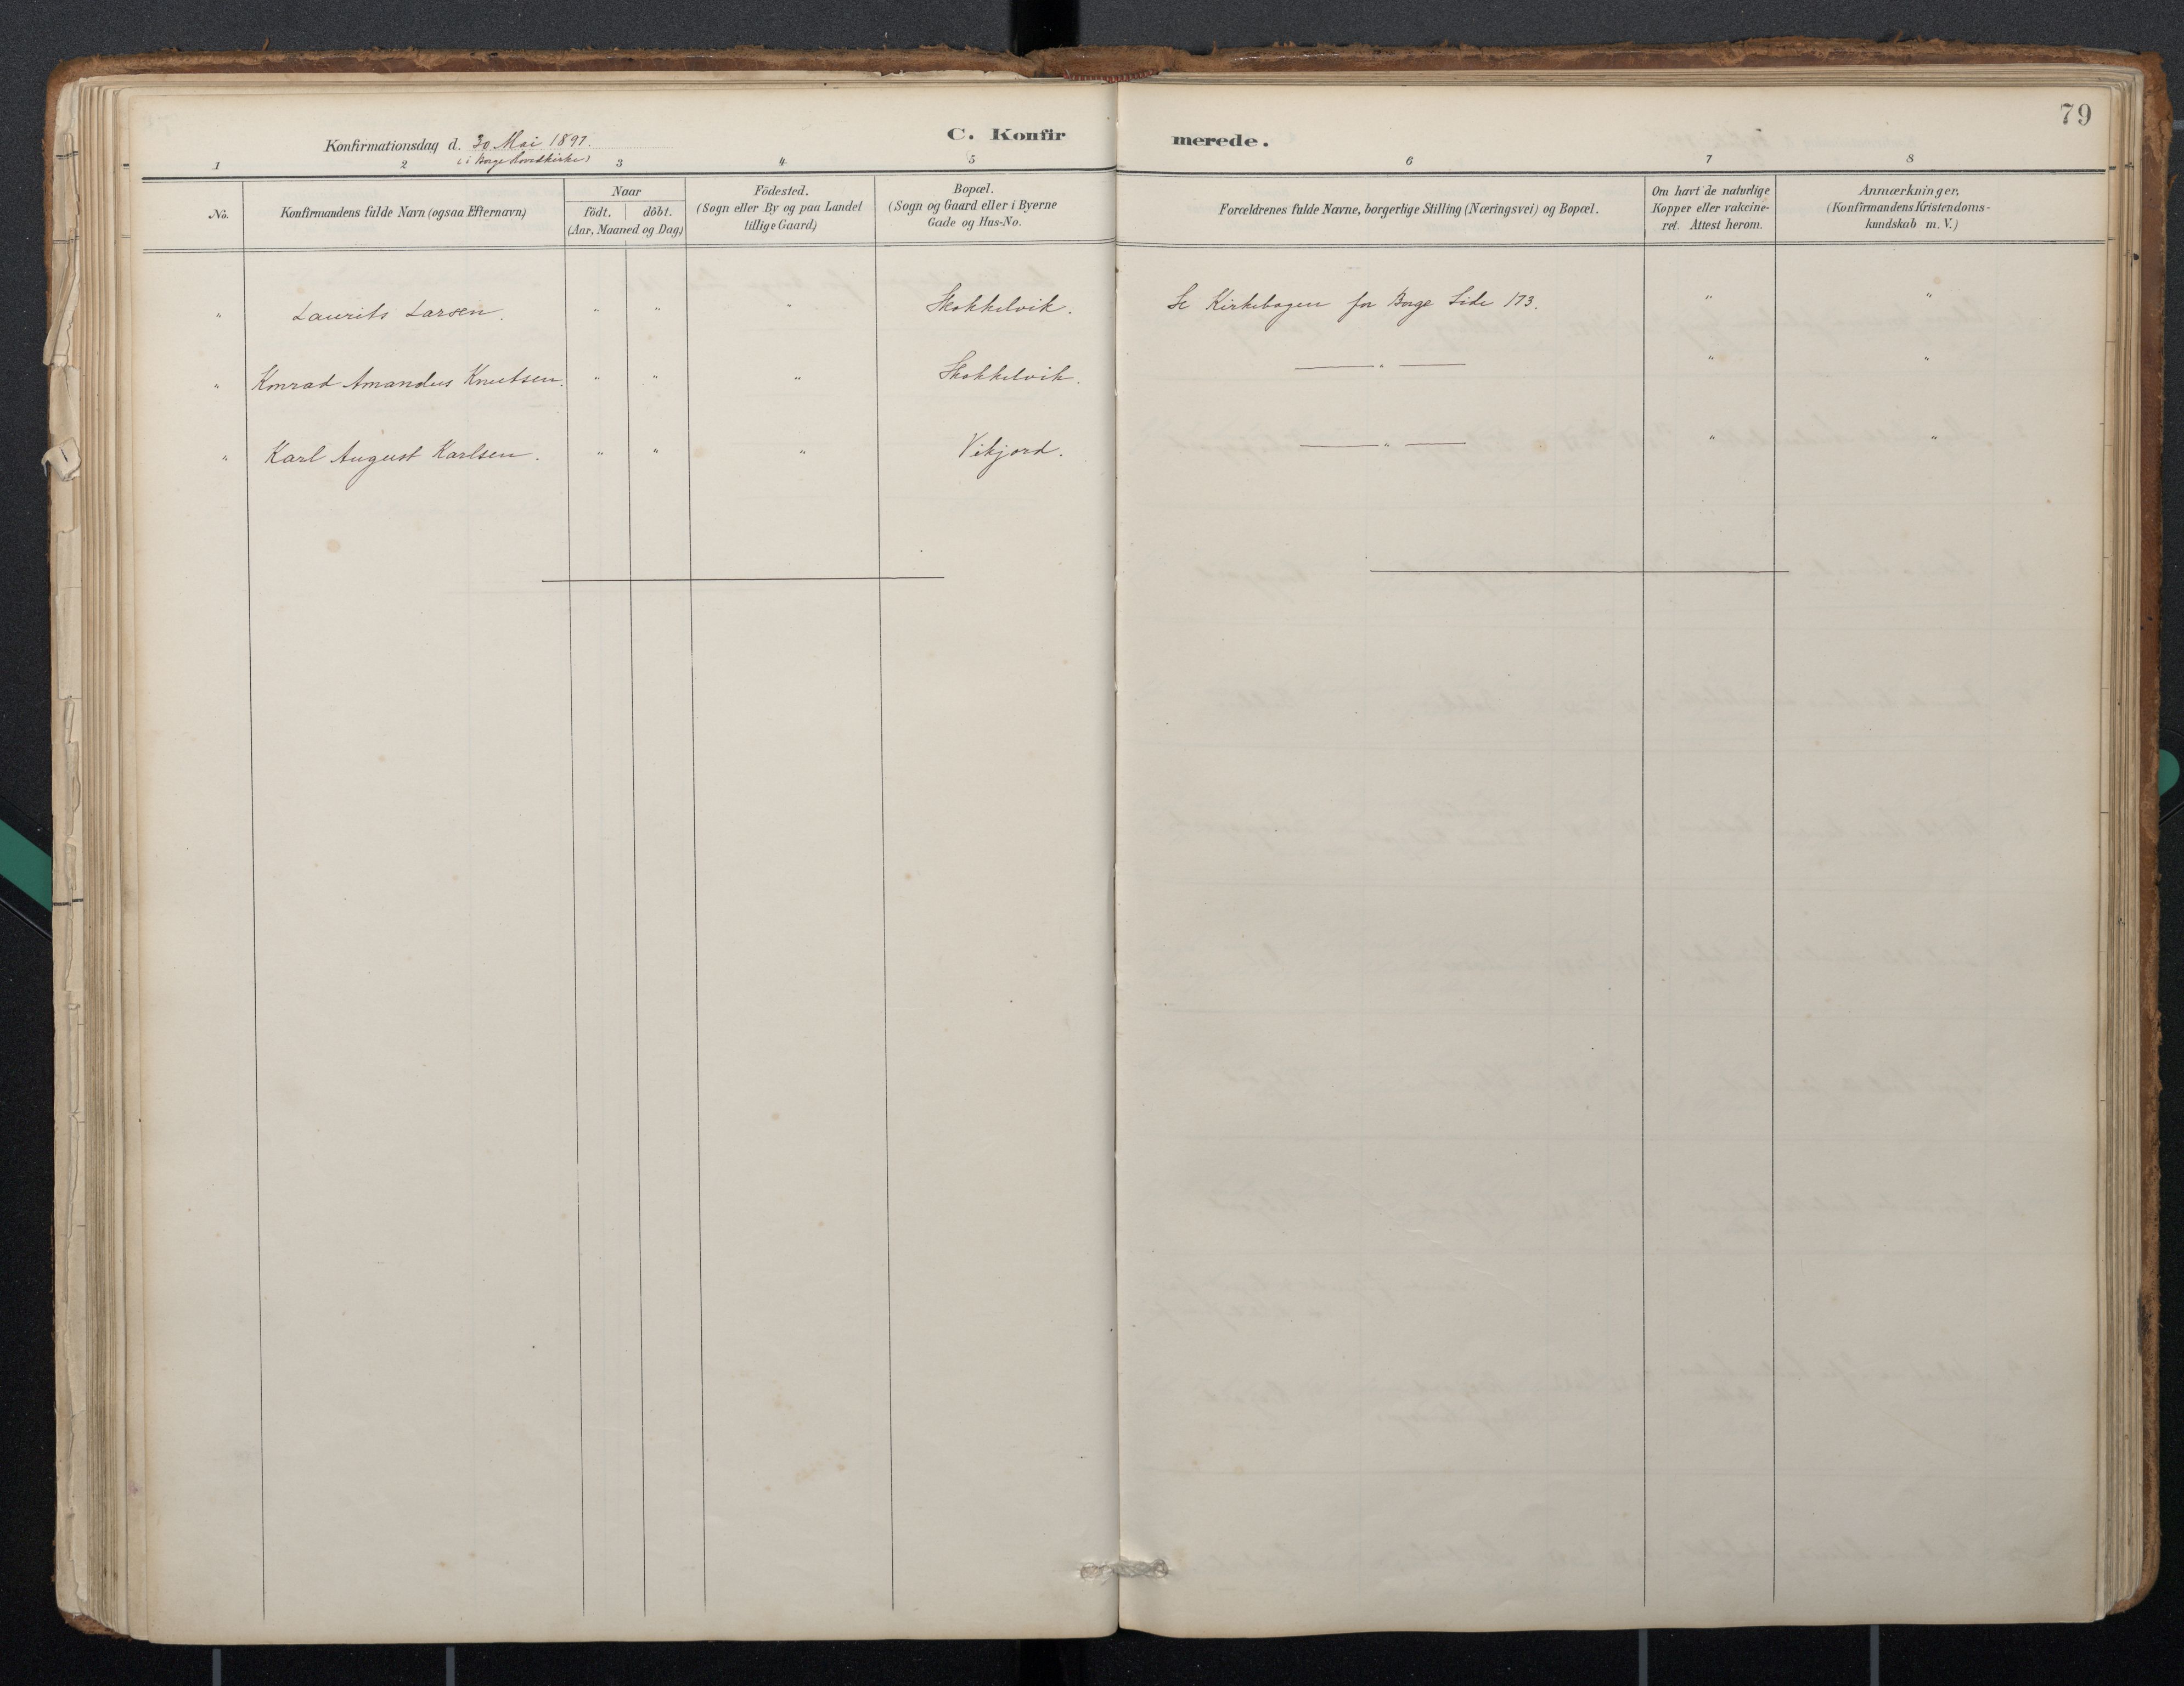 79
C. Konfirmerede.
Konfirmationsdag d. 30 Mai 1897.
(i Borge Hovedkirke)
1 2 3 4 5 6 7 8
No.
Konfirmandens fulde Navn (ogsaa Efternavn)
Naar
födt. | döbt.
(Aar, Maaned og Dag)
Födested.
(Sogn eller By og paa Landet
tillige Gaard)
Bopæl.
(Sogn og Gaard eller i Byerne
Gade og Hus-No.
Forældrenes fulde Navne, borgerlige Stilling (Næringsvei) og Bopæl.
Om havt de naturlige
Kopper eller vakcine-
ret. Attest herom.
Anmærkninger,
(Konfirmandens Kristendoms-
kundskab m. V.)
" Laurits Larsen. " " " Skokkelvik. Se Kirkebogen for Borge Side 173. " "
" Konrad Amandus Knutsen. " " " Skokkelvik. — " — " "
" Karl August Karlsen. " " " Vikjord. — " — " "